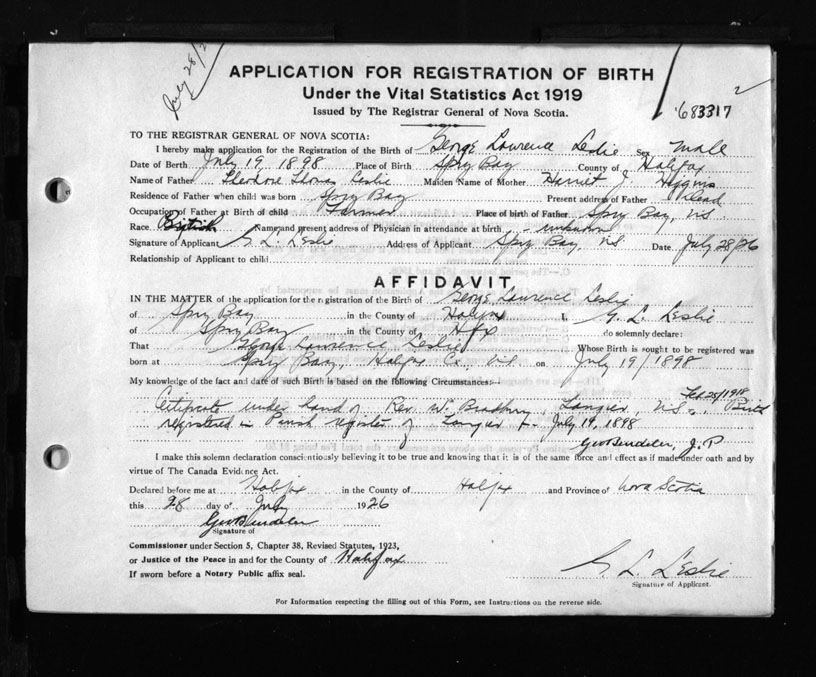 July 28/2
APPLICATION FOR REGISTRATION OF BIRTH
Under the Vital Statistics Act 1919
Issued by The Registrar General of Nova Scotia.
2
683317
TO THE REGISTRAR GENERAL OF NOVA SCOTIA:
I hereby make application for the Registration of the Birth of George Lawrence Leslie Sex Male
Date of Birth July 19, 1898 Place of Birth Spry Bay County of Halifax
Name of Father Theodore Thomas Leslie Maiden Name of Mother Harriet J. Higgins
Residence of Father when child was born Spry Bay Present address of Father Dead
Occupation of Father at Birth of child Farmer Place of birth of Father Spry Bay, N.S.
Race British Name and present address of Physician in attendance at birth unknown
Signature of Applicant G. L. Leslie Address of Applicant Spry Bay, N.S. Date July 28/26
Relationship of Applicant to child
AFFIDAVIT
IN THE MATTER of the application for the registration of the Birth of George Lawrence Leslie
of Spry Bay in the County of Halifax I, G. L. Leslie
of Spry Bay in the County of Hfx do solemnly declare:
That George Lawrence Leslie Whose Birth is sought to be registered was
born at Spry Bay, Halifax Co., N.S. on July 19/1898
My knowledge of the fact and date of such Birth is based on the following Circumstances:
Feb 25/1918
Certificate under hand of Rev. W. Bradbury, Tangier, N.S., Birth
registered in Parish register of Tangier July 19, 1898
J.P
I make this solemn declaration conscientiously believing it to be true and knowing that it is of the same force and effect as if made under oath and by
virtue of The Canada Evidence Act.
Declared before me at Halifax in the County of Halifax and Province of Nova Scotia
this 28 day of July 1926
Signature of
Commissioner under Section 5, Chapter 38, Revised Statutes, 1923,
or Justice of the Peace in and for the County of Halifax
If sworn before a Notary Public affix seal.
G. L. Leslie
Signature of Applicant.
For Information respecting the filling out of this Form, see Instructions on the reverse side.